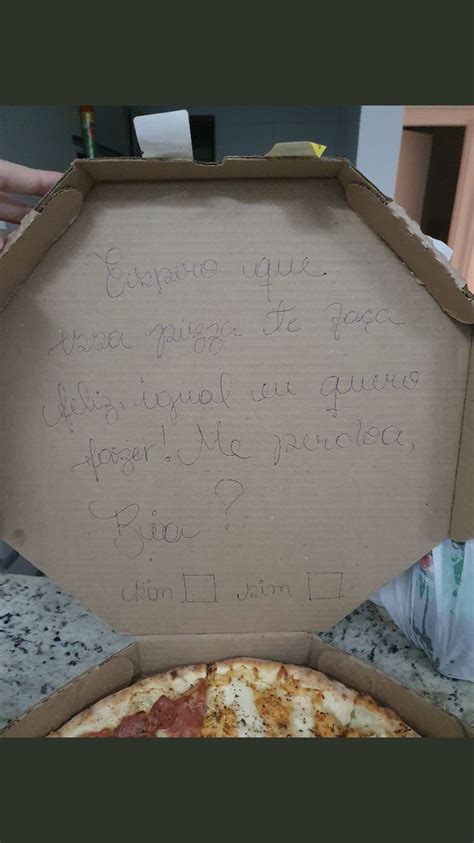 Espero que
essa pizza te faça
feliz, igual eu quero
fazer! Me perdoa,
Bia?
sim sim